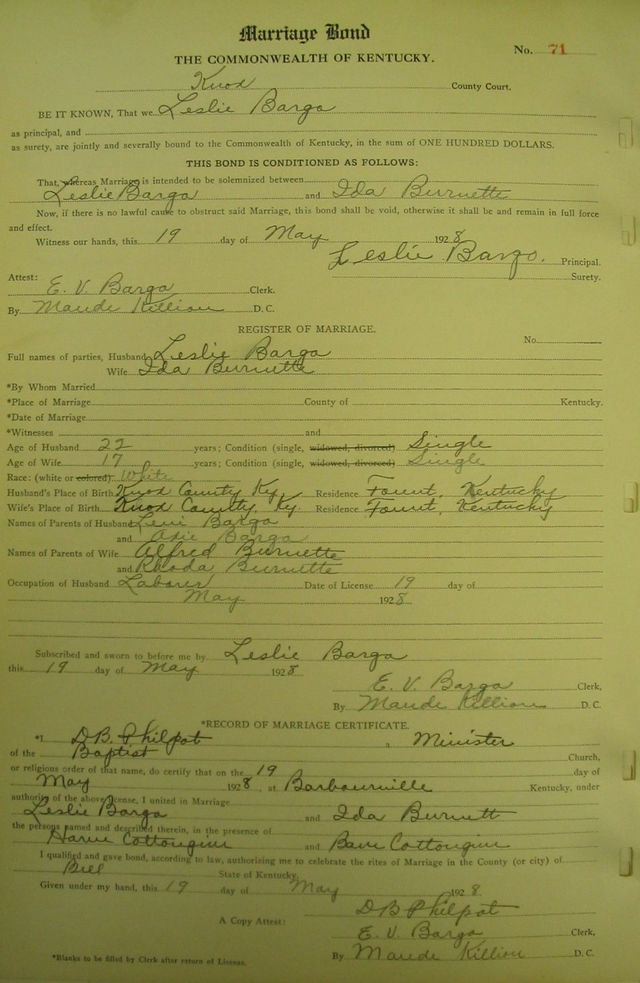 Marriage Bond
THE COMMONWEALTH OF KENTUCKY.
No. 71
Knox County Court.
BE IT KNOWN, That we Leslie Bargo
as principal, and
as surety, are jointly and severally bound to the Commonwealth of Kentucky, in the sum of ONE HUNDRED DOLLARS.
THIS BOND IS CONDITIONED AS FOLLOWS:
That, whereas Marriage is intended to be solemnized between
Leslie Bargo and Ida Burnette
Now, if there is no lawful cause to obstruct said Marriage, this bond shall be void, otherwise it shall be and remain in full force
and effect.
Witness our hands, this 19 day of May 1928
Leslie Bargo. Principal.
Surety.
Attest:
E. V. Bargo Clerk.
By Maude Killion D. C.
REGISTER OF MARRIAGE.
No.
Full names of parties, Husband Leslie Bargo
Wife Ida Burnette
*By Whom Married
*Place of Marriage County of Kentucky.
*Date of Marriage
*Witnesses and
Age of Husband 22 years; Condition (single, widowed, divorced) Single
Age of Wife 17 years; Condition (single, widowed, divorced) Single
Race: (white or colored) White
Husband's Place of Birth Knox County Ky. Residence Fount, Kentucky
Wife's Place of Birth Knox County, Ky. Residence Fount, Kentucky
Names of Parents of Husband Levi Bargo
and Adie Bargo
Names of Parents of Wife Alfred Burnette
and Rhoda Burnette
Occupation of Husband Laborer Date of License 19 day of
May 1928
Subscribed and sworn to before me by Leslie Bargo
this 19 day of May 1928
E. V. Bargo Clerk,
By Maude Killion D. C.
*RECORD OF MARRIAGE CERTIFICATE.
*I D.B. Philpot a Minister
of the Baptist Church,
or religious order of that name, do certify that on the 19 day of
May 1928, at Barbourville Kentucky, under
authority of the above license, I united in Marriage
Leslie Bargo and Ida Burnett
the persons named and described therein, in the presence of
Cottongim and Cottongim
I qualified and gave bond, according to law, authorizing me to celebrate the rites of Marriage in the County (or city) of
Bell State of Kentucky.
Given under my hand, this 19 day of May 1928
D B Philpot
A Copy Attest: E. V. Bargo Clerk,
By Maude Killion D. C.
*Blanks to be filled by Clerk after return of License.